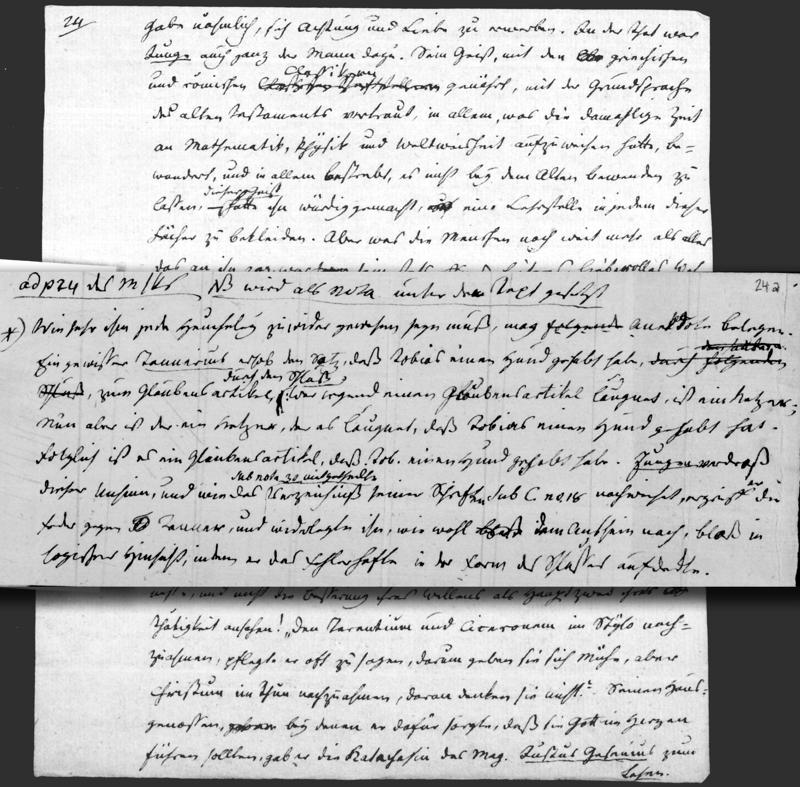 24
Gabe nähmlich, sich Achtung und Liebe zu erwerben. In der That war
Junge auch ganz der Mann dazu. Sein Geist, mit den griechischen
und römischen Classikern genährt, mit der Grundsprache
des alten Testaments vertraut, in allem, was die damahlige Zeit
an Mathematik, Physik und Weltweisheit aufzuweisen hatte, be-
wandert, und in allem bestrebt, es nicht bey dem Alten bewenden zu
lassen, dieser Geist hatte ihn würdig gemacht, eine Lehrstelle in jedem dieser
Fächer zu bekleiden. Aber was die Menschen noch weit mehr als alles
das an ihn
ad p 24 des M/kts NB wird als Nota unter den Text gesetzt 24a
*) Wie sehr ihm jede zuwider gewesen seyn muß, mag folgende Anekdote belegen.
Ein gewisser Tannerus erhob den Satz, daß Tobias einen Hund gehabt habe, durch folgenden
Schluß, zum Glaubensartikel, durch den Schluß: Wer irgend einen Glaubensartikel läugnet, ist ein Ketzer;
Nun aber ist der ein Ketzer, der es läugnet, daß Tobias einen Hund gehabt hat.
Folglich ist es ein Glaubensartikel, daß Tob. einen Hund gehabt habe. Jungen verdroß
dieser Unsinn, und wie das sub nota 30 mitgetheilte Verzeichniß seiner Schriften sub C. no. 18 nachweiset, ergriff er die
Feder gegen Tanner, und widerlegte ihn, wie wohl dem Ansehn nach, bloß in
logischer Hinsicht, indem er das Fehlerhafte in der Form des Schlusses aufdeckte.
und nicht die Besserung ihres Willens als Hauptzweck ihrer
Thätigkeit ansehen! „Den Terentium und Ciceronem im Stylo nach-
zuahmen, pflegte er oft zu sagen, darum geben sie sich Mühe, aber
Christum im Thun nachzuahmen, daran denken sie nicht." Seinen Haus-
genossen, bey denen er dafür sorgte, daß sie Gott im Herzen
führen sollten, gab er die Katechesin des Mag. Justus Gesenius zum
Lesen.